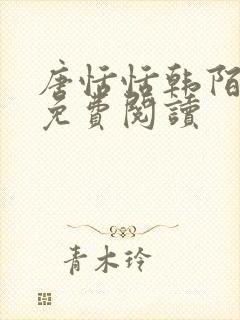 唐恬恬韩陌
免費閱讀
青木玲